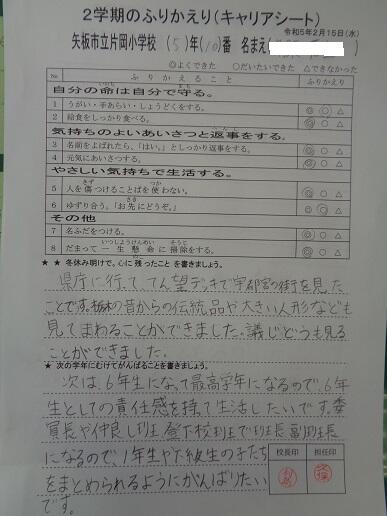 2学期のふりかえり(キャリアシート)
令和5年2月15日(水)
矢板市立片岡小学校 (5)年(10)番 名まえ(
◎よくできた ○だいたいできた △できなかった
No ふりかえること ふりかえり
自分の命は自分で守る。
1 うがい・手あらい・しょうどくをする。 ◎ ○ △
2 給食をしっかり食べる。 ◎ ○ △
気持ちのよいあいさつと返事をする。
3 名前をよばれたら、「はい。」としっかり返事をする。 ◎ ○ △
4 元気にあいさつする。 ◎ ○ △
やさしい気持ちで生活する。
5 人を傷つけることばを使わない。 ◎ ○ △
6 ゆずり合う。「お先にどうぞ。」 ◎ ○ △
その他
7 名ふだをつける。 ◎ ○ △
8 だまって一生懸命に掃除をする。 ◎ ○ △
★ ★ 冬休み明けで、心に残ったことを書きましょう。
県庁に行って、てん望デッキで宇都宮の街を見た
ことです。栃木の昔からの伝統品や大きい人形なども
見てまわることができました。議じどうも見る
ことができました。
★ 次の学年にむけてがんばることを書きましょう。
次は、6年生になって最高学年になるので、6年
生としての責任感を持て生活したいです。委
員長や仲良し班、登下校班で班長、副班長
になるので、1年生や下級生の子たち
をまとめられるようにがんばりたい
です。
校長印 担任印